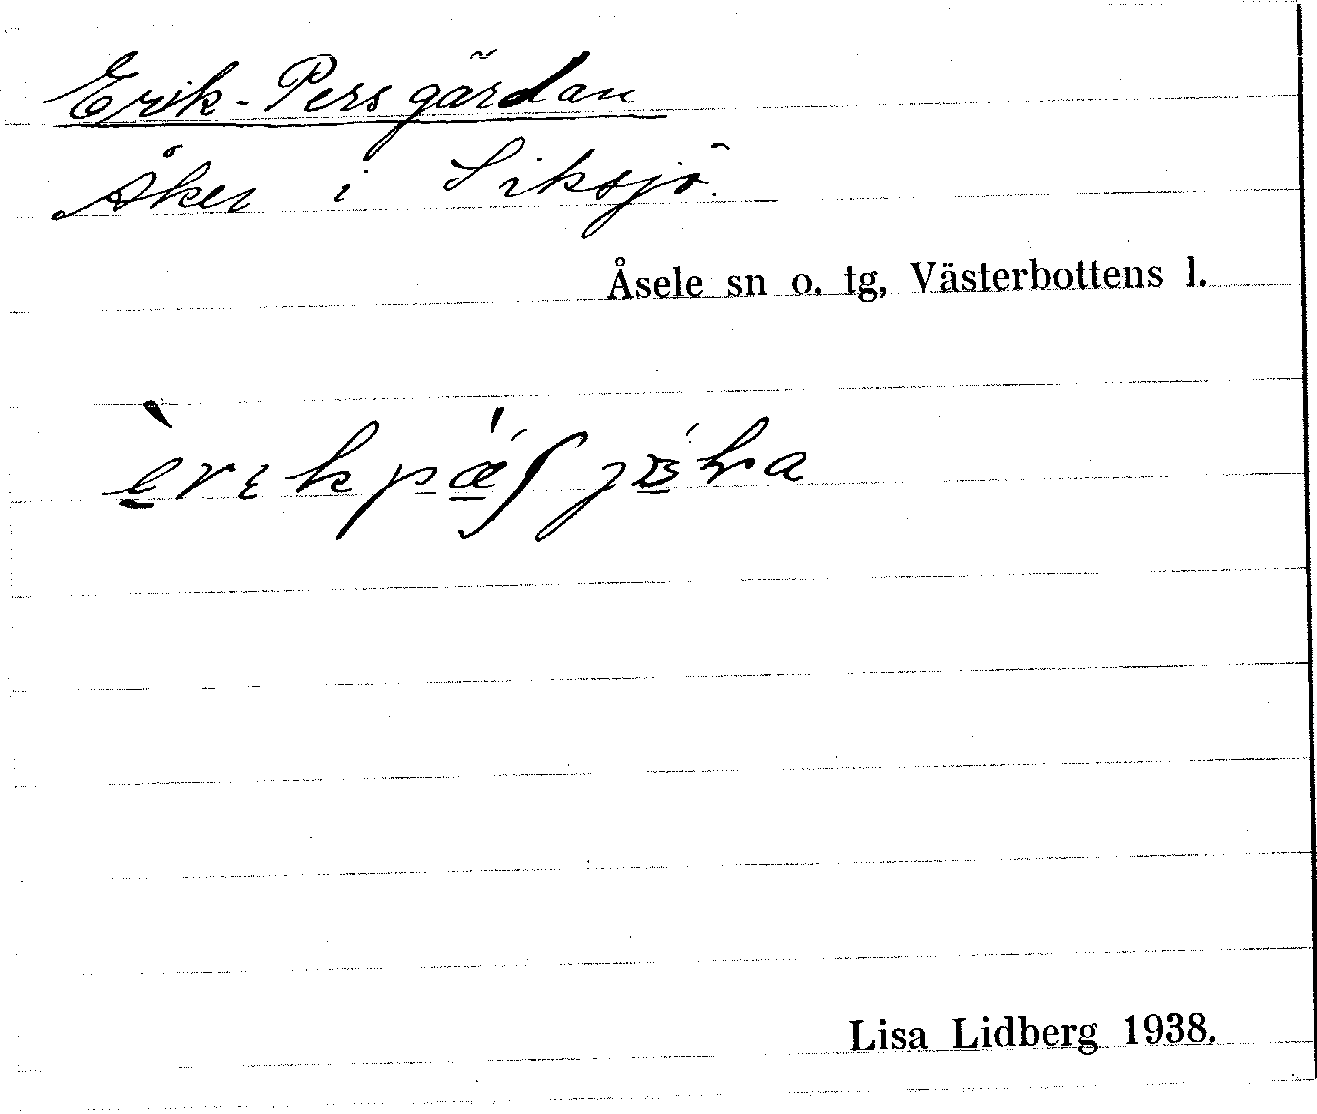 Erik-Persgärdan
Åker i Siksjö.
Åsele sn o. tg, Västerbottens l.
Lisa Lidberg 1938.